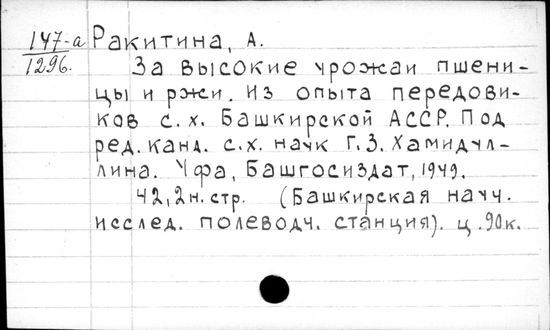 147-а Ракитина, А.
1296.
За высокие урожаи пшени-
цы и ржи. Из опыта передови-
ков с.х. Башкирской АССР. Под
ред. канд. с.х. наук Г.З. Хамидул-
лина. Уфа, Башгосиздат, 1949.
42,2н. стр. (Башкирская науч.
исслед. полеводч. станция). ц. 90к.